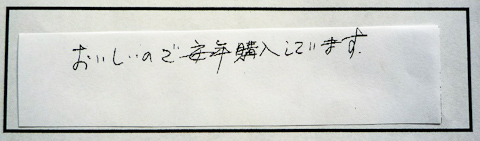 おいしいので毎年購入しています。